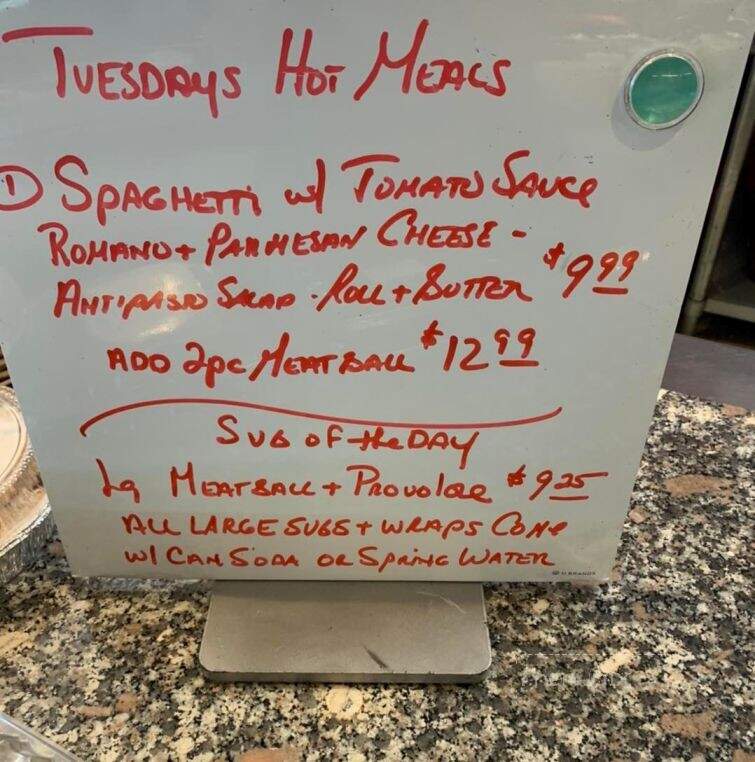 TUESDAYS HOT MEALS
1) SPAGHETTI w/ TOMATO SAUCE
ROMANO + PARMESAN CHEESE -
ANTIPASTO SALAD - ROLL + BUTTER $9.99
ADD 2pc MEATBALL $12.99
SUB OF the DAY
Lg MEATBALL + PROVOLONE $9.25
ALL LARGE SUBS + WRAPS COME
w/ CAN SODA OR SPRING WATER
U BRANDS